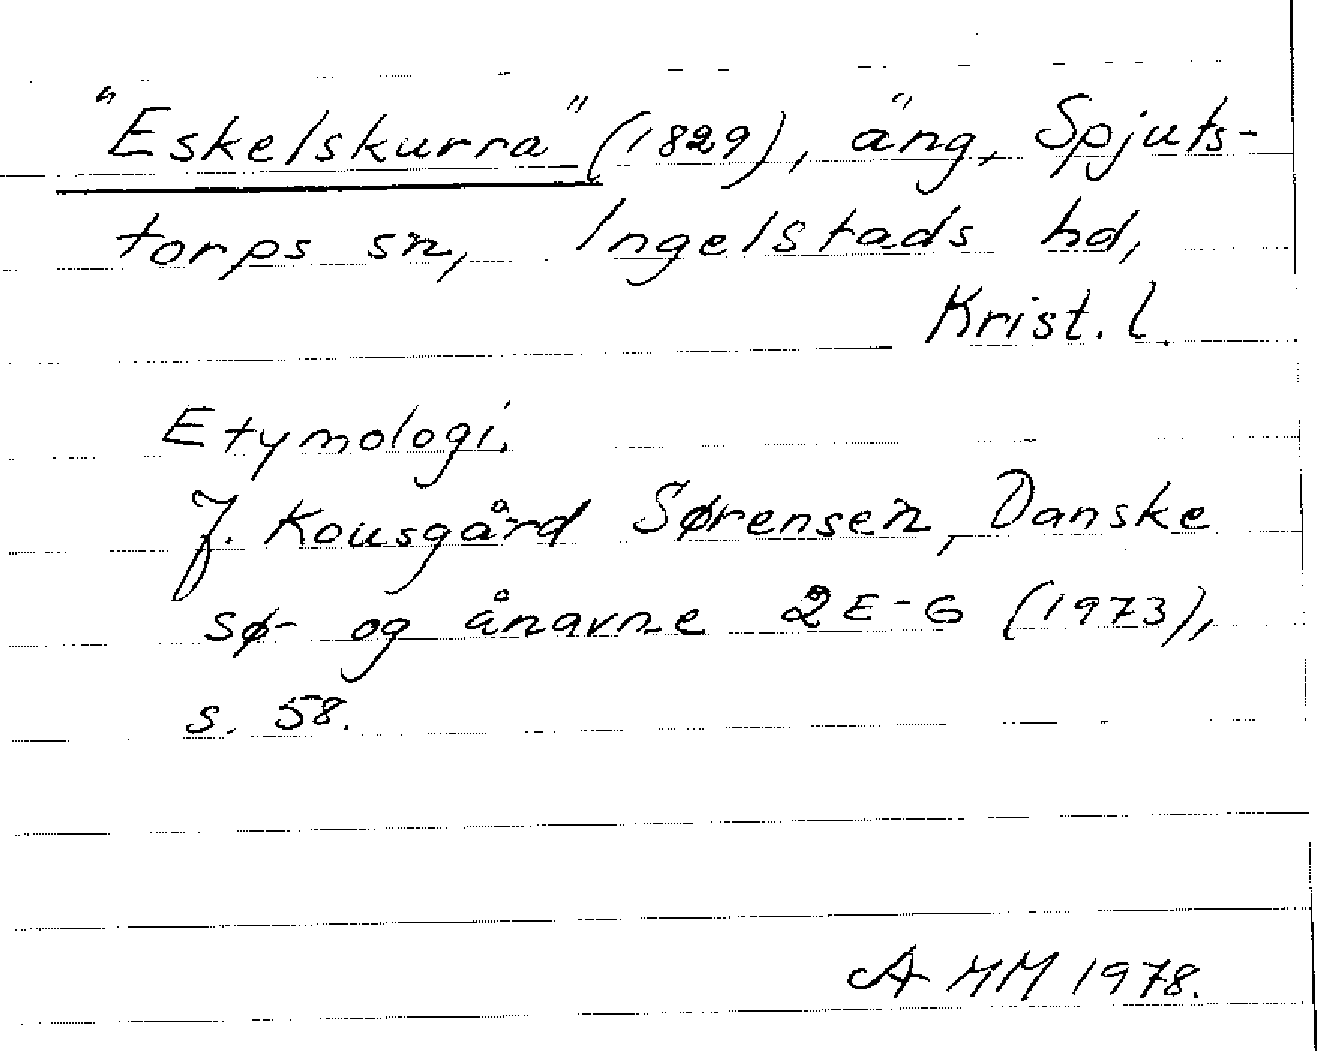 "Eskelskurra" (1829), äng, Spjuts-
torps sn, Ingelstads hd,
Krist. l.
Etymologi.
J. Kousgård Sørensen, Danske
sø- og ånavne 2 E-G (1973),
s. 58.
A MM 1978.